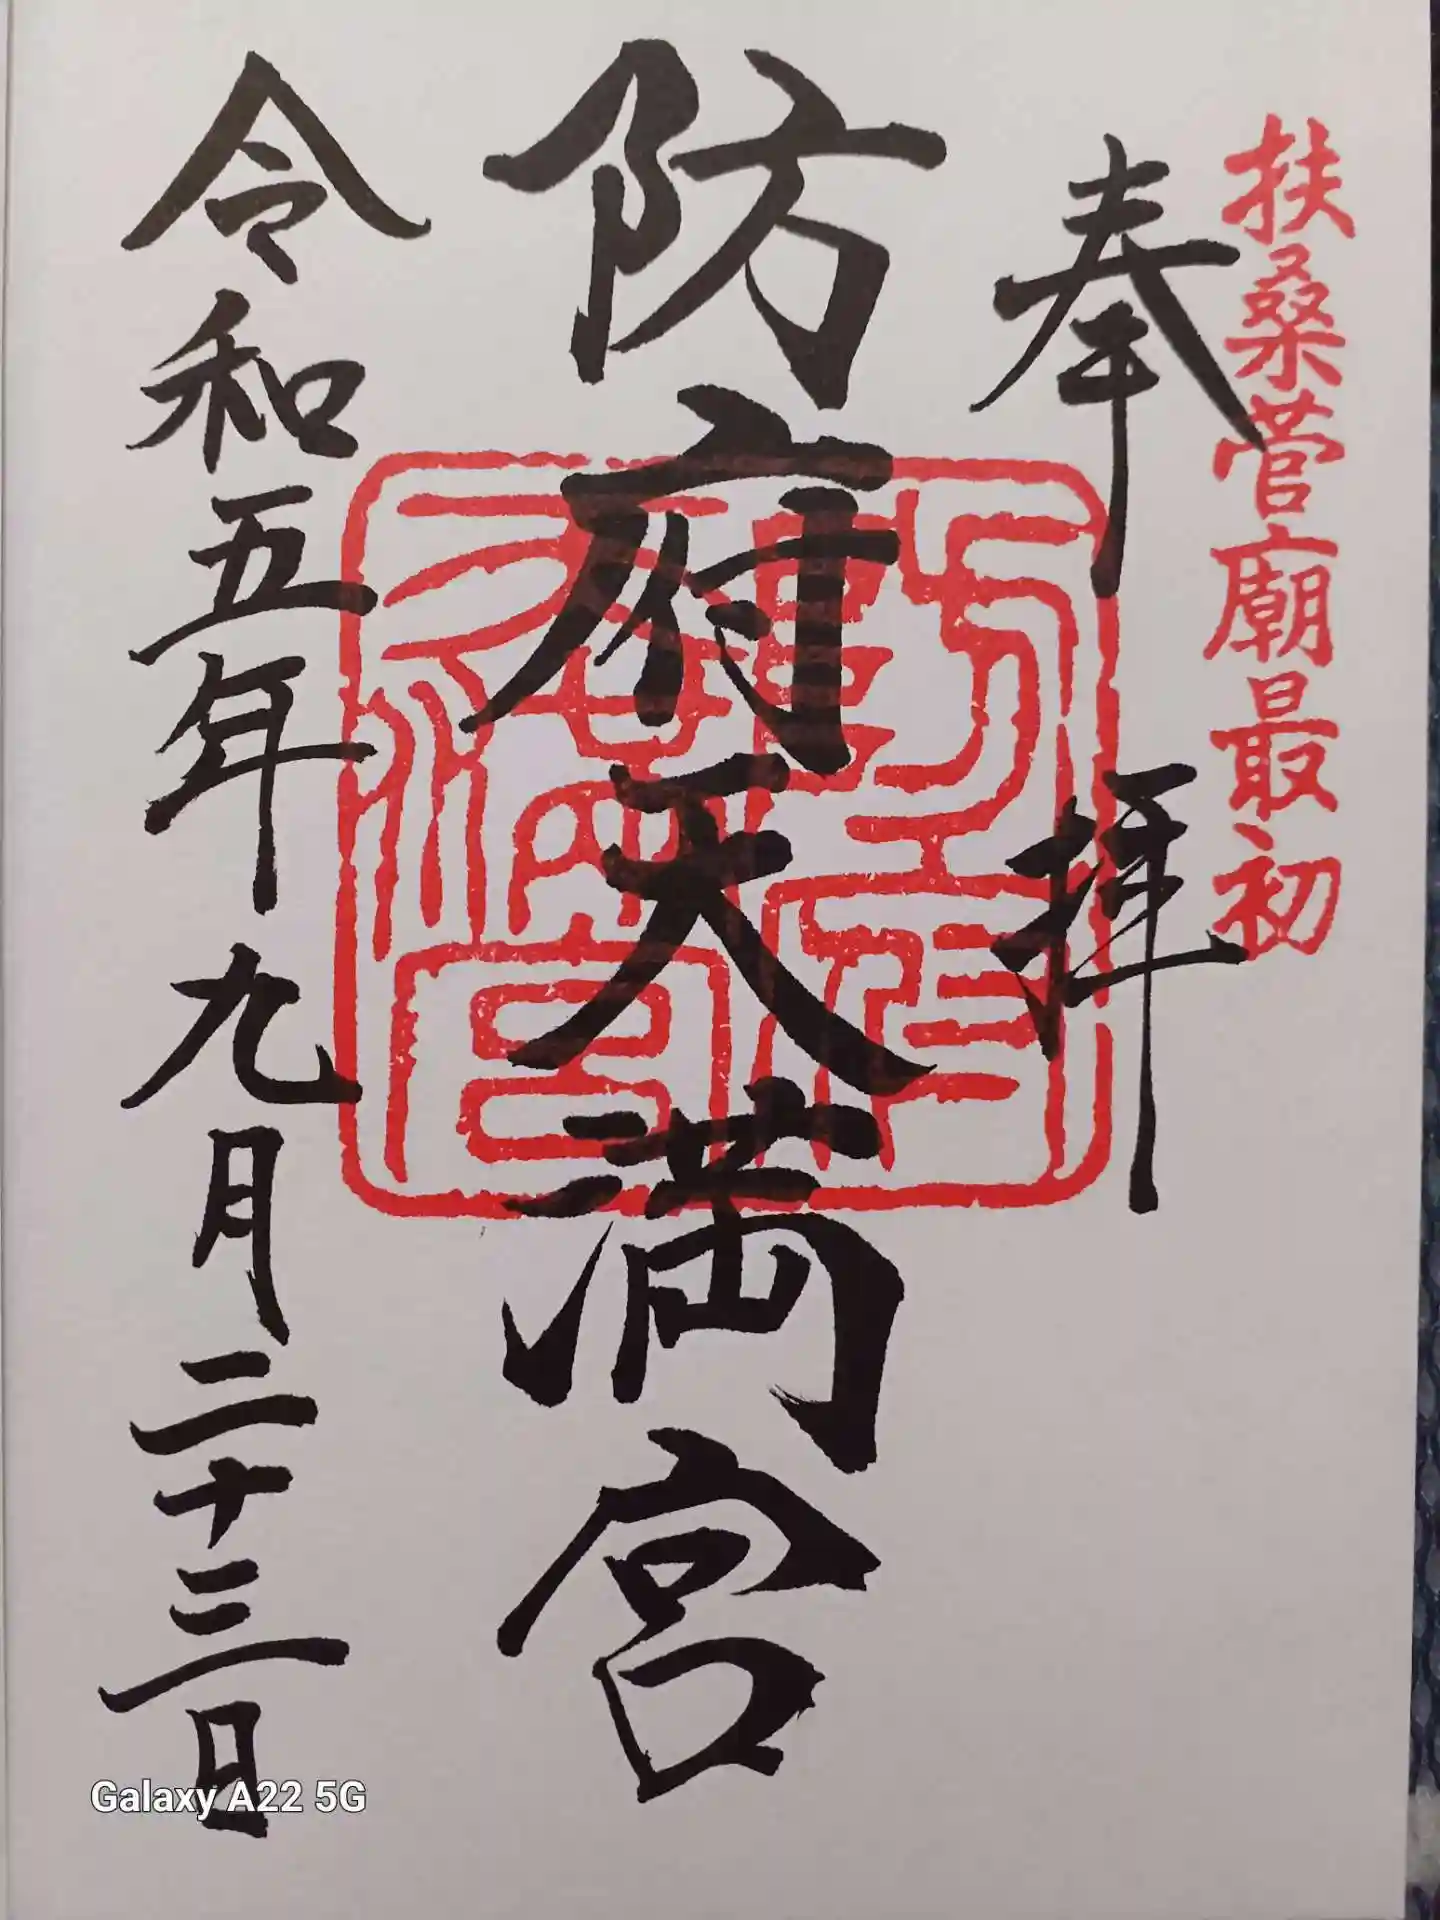 扶桑菅廟最初
奉拝
防府天満宮
令和五年九月二十三日
防府天満宮
Galaxy A22 5G